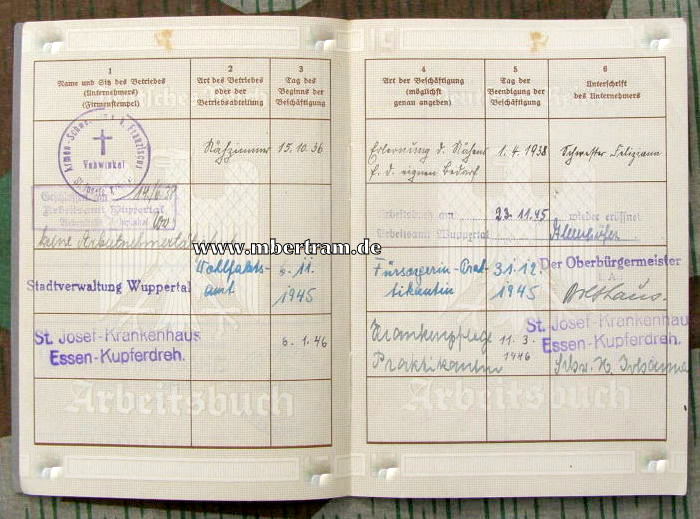 1
Name und Sitz des Betriebes
(Unternehmers)
(Firmenstempel)
2
Art des Betriebes
oder der
Betriebsabteilung
3
Tag des
Beginns der
Beschäftigung
Armen-Schwestern v. Franziscus
Vohwinkel
St. Josefs
Nähzimmer
15.10.36
14/6.39
Arbeitsamt Wuppertal
keine Arbeitnehmertätigkeit
Stadtverwaltung Wuppertal
Wohlfahrts-
amt
11.
1945
St. Josef-Krankenhaus
Essen-Kupferdreh.
6.1.46
Arbeitsbuch
4
Art der Beschäftigung
(möglichst
genau angeben)
5
Tag der
Beendigung der
Beschäftigung
6
Unterschrift
des Unternehmers
Erlernung d. Nähens
f. d. eignen Bedarf
1.4.1938
Schwester Feliziana
Arbeitsbuch am 23.11.45 wieder eröffnet
Arbeitsamt Wuppertal
Fürsorgerin-Prak-
tikantin
31.12.
1945
Der Oberbürgermeister
I. A.
Krankenpflege
Praktikantin
11.3.
1946
St. Josef-Krankenhaus
Essen-Kupferdreh.
Arbeitsbuch
www.mbertram.de